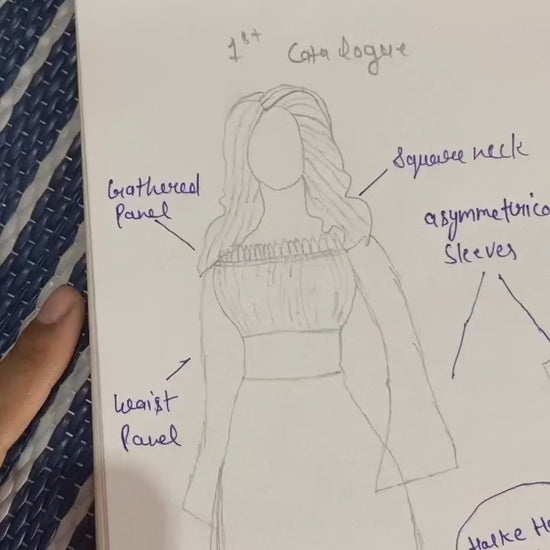 1st Catalogue
Square neck
Gathered
Panel
asymmetrica
Sleeves
Waist
Panel
Halke